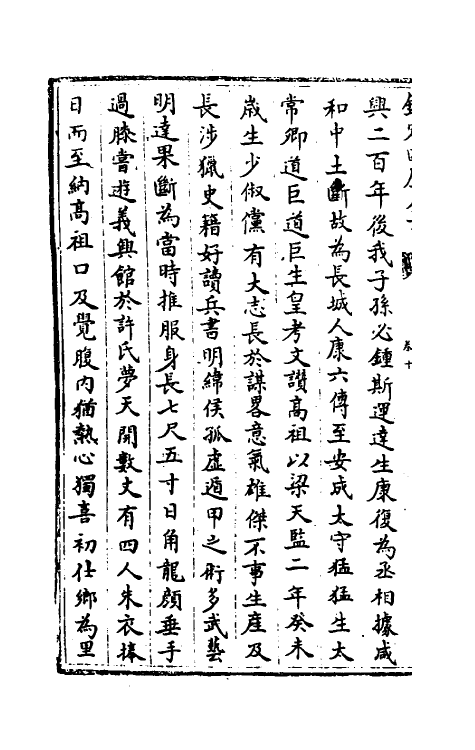 卷十
興二百年後我子孫必鍾斯運達生康復為丞相據咸
和中土斷故為長城人康六傳至安成太守猛猛生太
常卿道巨道巨生皇考文讚高祖以梁天監二年癸未
歲生少俶儻有大志長於謀畧意氣雄傑不事生產及
長涉獵史籍好讀兵書明緯侯孤虛遁甲之術多武藝
明達果斷為當時推服身長七尺五寸日角龍顔垂手
過膝嘗遊義興館於許氏夢天開數丈有四人朱衣捧
日而至納高祖口及覺腹内猶熱心獨喜初仕鄉為里